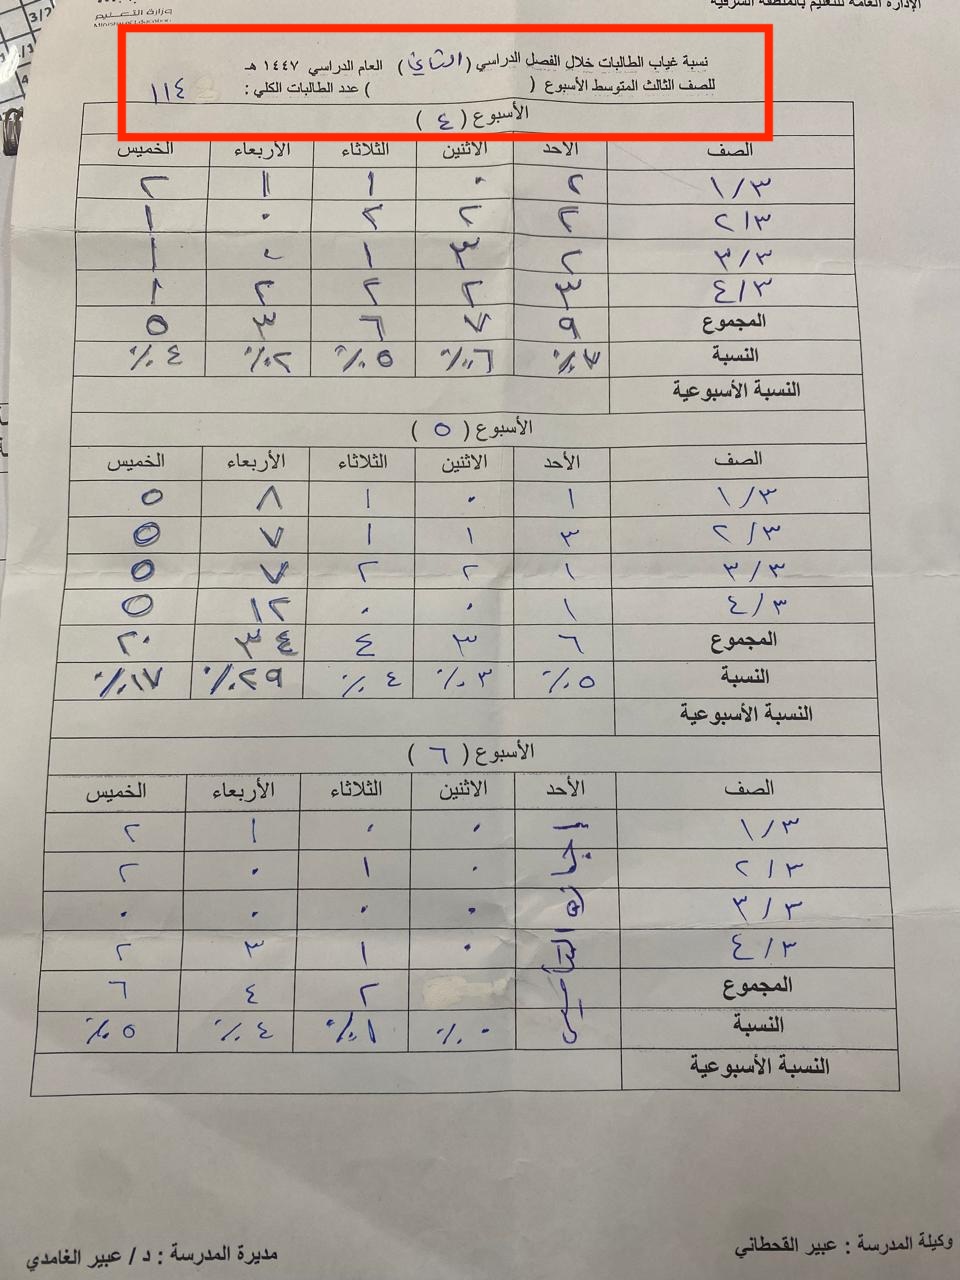 الإدارة العامة للتعليم بالمنطقة الشرقية
وزارة التعليم
Ministry of Education
نسبة غياب الطالبات خلال الفصل الدراسي ( الثاني ) العام الدراسي ١٤٤٧ هـ
للصف الثالث المتوسط الأسبوع ( ) عدد الطالبات الكلي : ١١٤
الأسبوع ( ٤ )
الصف الأحد الاثنين الثلاثاء الأربعاء الخميس
١/٣ ٢ ٠ ١ ١ ٢
٢/٣ ٢ ٢ ٢ ٠ ١
٣/٣ ٢ ٣ ١ ٠ ١
٤/٣ ٣ ٢ ٢ ٢ ١
المجموع ٩ ٧ ٦ ٣ ٥
النسبة ٪٦ ٪٥ ٪٢ ٪٤
النسبة الأسبوعية
الأسبوع ( ٥ )
الصف الأحد الاثنين الثلاثاء الأربعاء الخميس
١/٣ ١ ٠ ١ ٨ ٥
٢/٣ ٣ ١ ١ ٧ ٥
٣/٣ ١ ٢ ٢ ٧ ٥
٤/٣ ١ ٠ ٠ ١٢ ٥
المجموع ٦ ٣ ٤ ٣٤ ٢٠
النسبة ٪٥ ٪٣ ٪٤ ٪٢٩ ٪١٧
النسبة الأسبوعية
الأسبوع ( ٦ )
الصف الأحد الاثنين الثلاثاء الأربعاء الخميس
١/٣ ٠ ٠ ١ ٢
٢/٣ ٠ ١ ٠ ٢
٣/٣ ٠ ٠ ٠ ٠
٤/٣ ٠ ١ ٣ ٢
المجموع ٢ ٤ ٦
النسبة ٪٠ ٪١ ٪٤ ٪٥
إجازة التأسيس
النسبة الأسبوعية
وكيلة المدرسة : عبير القحطاني
مديرة المدرسة : د / عبير الغامدي